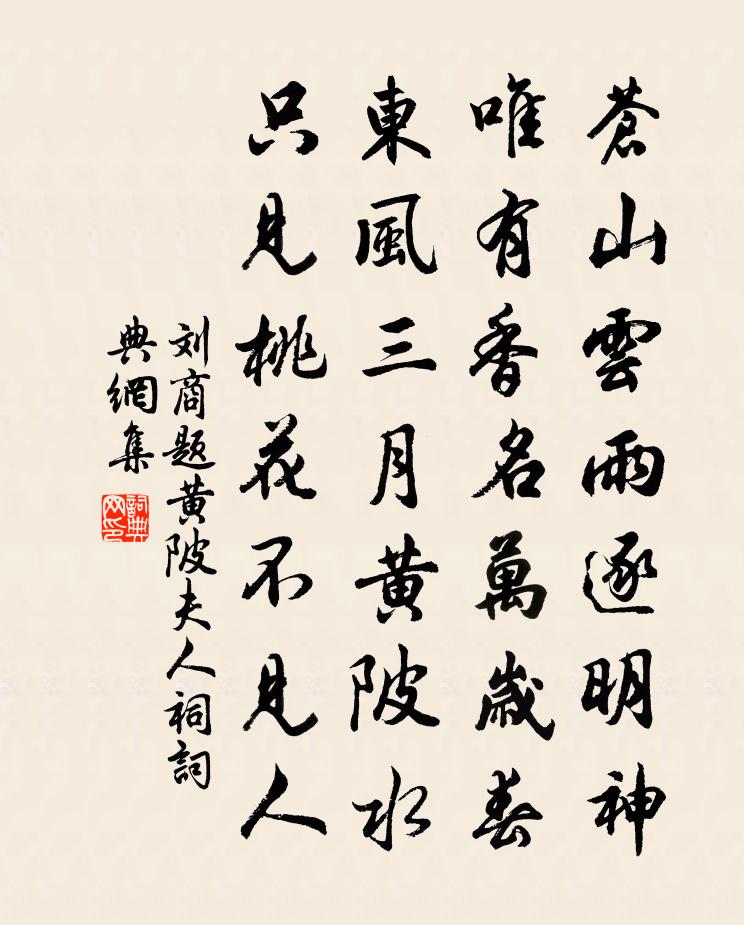 蒼山雲雨逐明神
唯有香名萬歲春
東風三月黄陂水
只見桃花不見人
刘商题黄陂夫人祠詞
典網集
詞典
网印